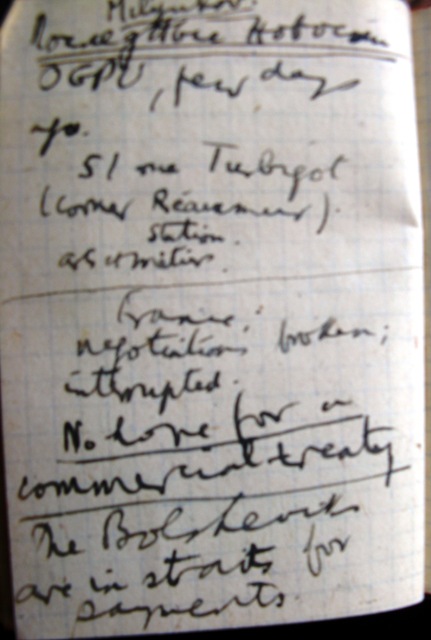 Milyukov.
Последние Новости
OGPU, few days
ago.
51 rue Turbigot
(corner Réaumur).
station.
arts et métiers.
France:
negotiations broken;
interrupted.
No hope for a
commercial treaty
The Bolsheviks
are in straits for
payments.